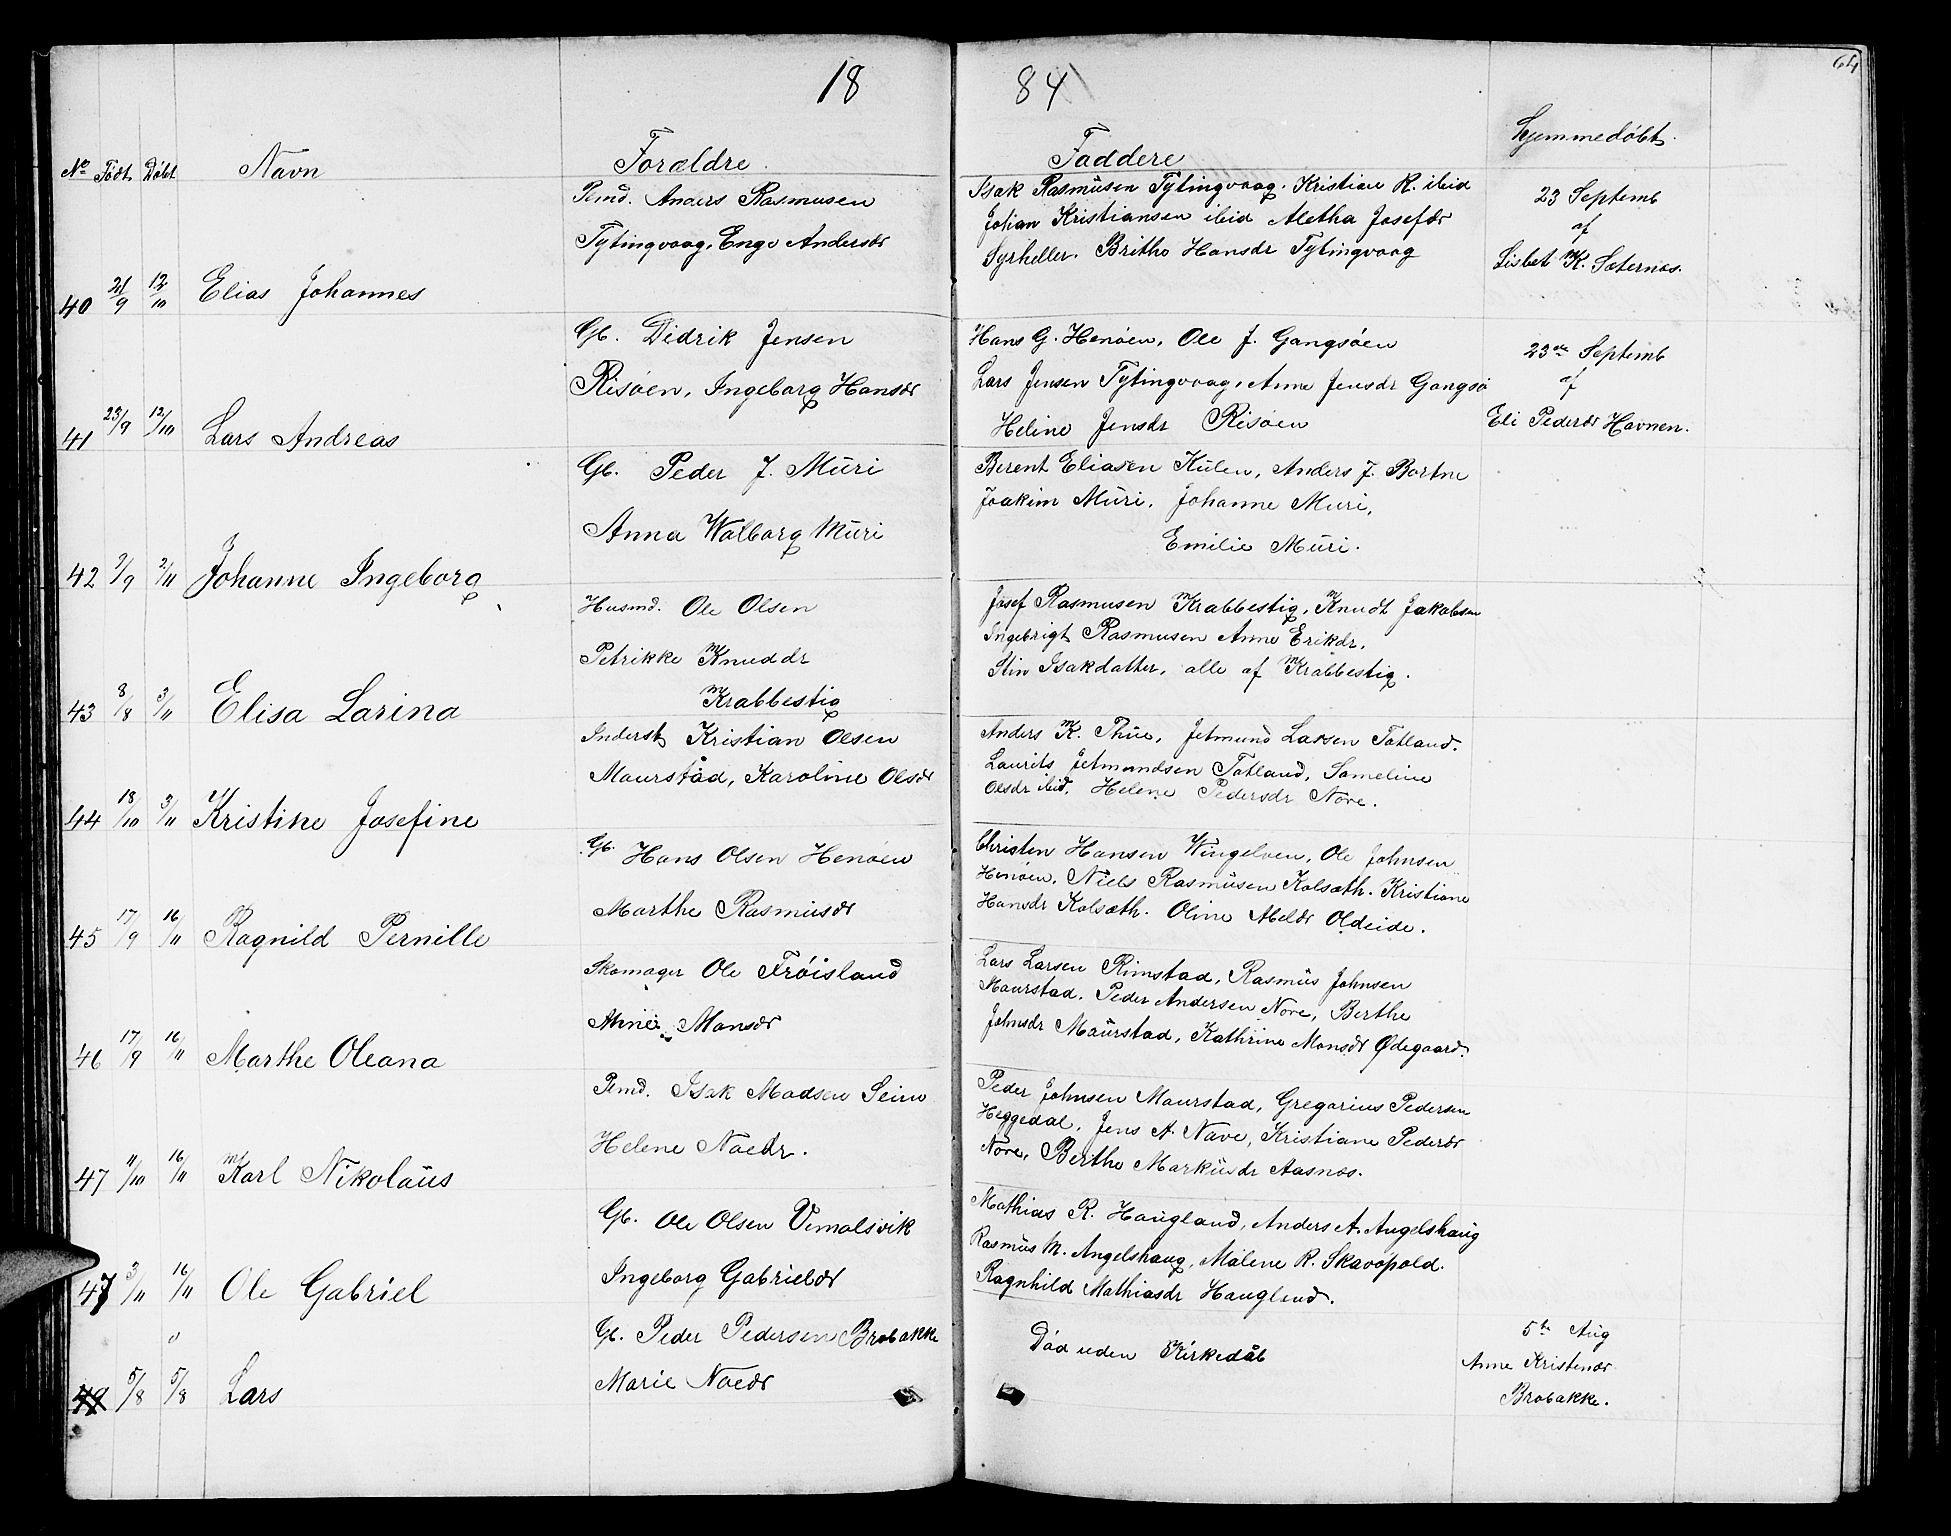 64
18 84
No Födt Döbt Navn Forældre Faddere Hjemmedöbt.
40 21/9 12/10 Elias Johannes
Pmd. Anders Rasmusen
Tytingvaag. Enge Andersdr
Isak Rasmusen Tytingvaag. Kristian R. ibid
Johan Kristiansen ibid Aletha Josefdr
Syrheller. Brithe Hansdr Tytingvaag
23 Septemb
af
Lisbet K. Sæternes.
41 23/9 12/10 Lars Andreas
Gb. Didrik Jensen
Risöen, Ingeborg Hansdr
Hans G. Henöen, Ole J. Gangsöen
Lars Jensen Tytingvaag, Anne Jensdr Gangsö
Heline Jensdr Risöen
23de Septemb
af
Eli Pedersdr Havnen.
42 7/9 2/11 Johanne Ingeborg
Gb. Peder J. Muri
Anna Walborg Muri
Berent Eliasen Kulen, Anders J. Bortne
Joakim Muri, Johanne Muri,
Emilie Muri.
43 8/8 3/11 Elisa Larina
Husmd. Ole Olsen
Petrikke Knuddr
Krabbestig
Josef Rasmusen Krabbestig, Knudt Jakobsen
Ingebrigt Rasmusen Anne Erikdr,
Stin Isakdatter, alle af Krabbestig.
44 18/10 3/11 Kristine Josefine
Inderst Kristian Olsen
Maurstad, Karoline Olsdr
Anders K. Thue, Jetmund Larsen Totland.
Laurits Jetmundsen Totland, Sameline
Olsdr ibid, Helene Pedersdr Nore.
45 17/9 16/11 Ragnild Pernille
Gb. Hans Olsen Henöen
Marthe Rasmusdr
Christen Hansen Wingelven, Ole Johnsen
Henöen, Niels Rasmusen Kolsæth. Kristiane
Hansdr Kolsæth. Oline Meldr Oldeide.
46 17/9 16/11 Marthe Oleana
Skomager Ole Fröisland
Anne Monsdr
Lars Larsen Rimstad, Rasmus Johnsen
Maurstad, Peder Andersen Nore, Berthe
Johnsdr Maurstad, Kathrine Monsdr Ødegaard.
47 11/10 16/11 Karl Nikolaus
Pmd. Isak Madsen Seim
Helene Noedr.
Peder Johnsen Maurstad, Gregorius Pedersen
Heggedal, Jens A. Nave, Kristiane Pedersdr
Nore, Berthe Markusdr Aasnes.
47 3/11 16/11 Ole Gabriel
Gb. Ole Olsen Vemalsvik
Ingeborg Gabrieldr
Mathias R. Haugland, Anders A. Angelshaug
Rasmus M. Angelshaug, Malene R. Skavöpold.
Ragnhild Mathiasdr Haugland.
49 5/8 5/8 Lars
Gb. Peder Pedersen Brobakke
Marie Noedr
Död uden Kirkedåb
5te Aug
Anne Kristendr
Brobakke.